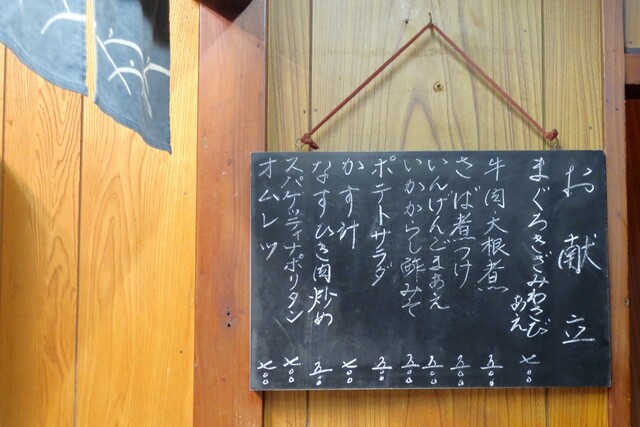 お献立
まぐろきざみわさびあえ 七〇〇
牛肉大根煮 五〇〇
さば煮つけ 五〇〇
いんげんごまあえ 五〇〇
いかからし酢みそ 五〇〇
ポテトサラダ 五〇〇
かす汁 七〇〇
なすひき肉炒め 五〇〇
スパゲッティナポリタン 七〇〇
オムレツ 七〇〇